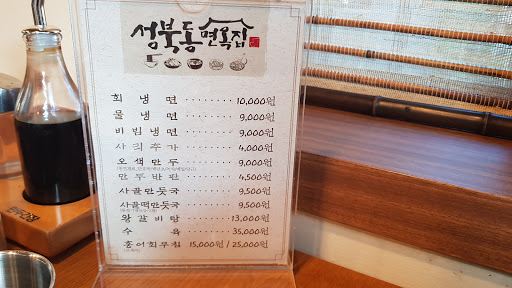 성북동 면옥집
회냉면 ········ 10,000원
물냉면 ········ 9,000원
비빔냉면 ········ 9,000원
사리추가 ········ 4,000원
오색만두 ········ 9,000원
만두반판 ········ 4,500원
사골만둣국 ········ 9,500원
사골떡만둣국 ········ 9,500원
왕갈비탕 ········ 13,000원
수육 ········ 35,000원
홍어회무침 15,000원 / 25,000원